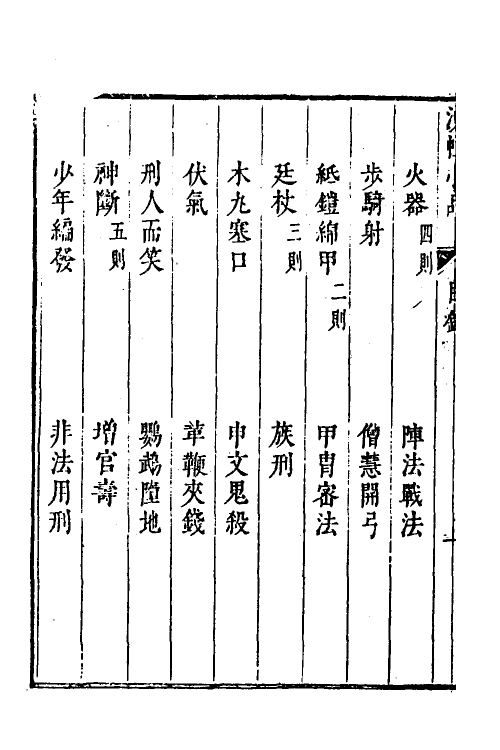 火器 四則 陣法戰法
步騎射 僧慧開弓
紙鎧綿甲 二則 甲冑審法
廷杖 三則 族刑
木丸塞口 申文鬼殺
伏氣 革鞭夾錢
刑人而笑 鸚鵡墮地
神斷 五則 增官壽
少年編發 非法用刑